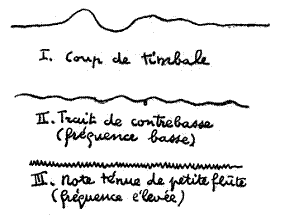 I. Coup de timbale
II. Trait de contrebasse
(fréquence basse)
III. Note tenue de petite flûte
(fréquence élevée)